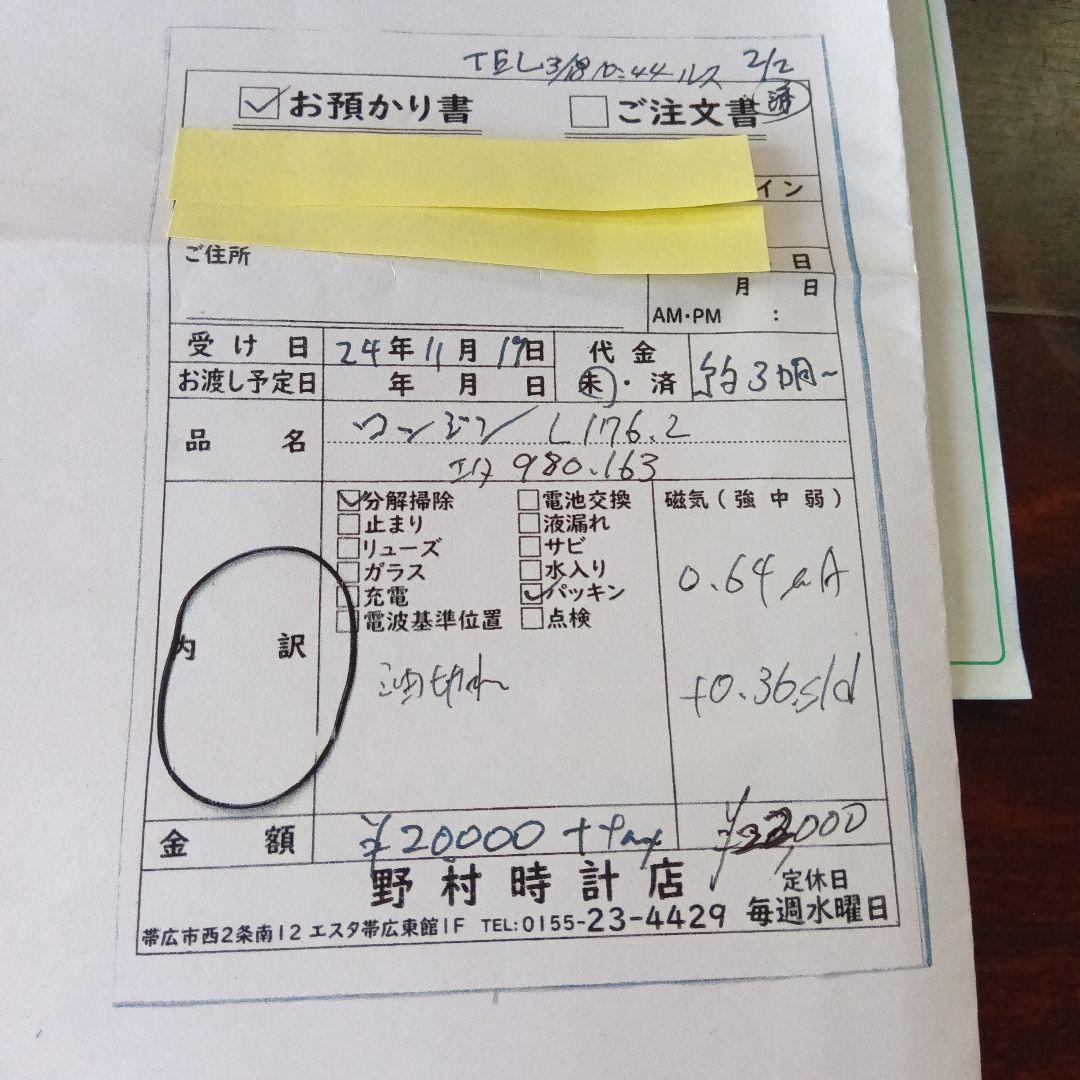 TEL 3/18 10:44 ルス 2/2
お預かり書 ご注文書 済
イン
日
ご住所
月 日
AM・PM :
受け日 24年 11月 19日 代金 約3カ月〜
お渡し予定日 年 月 日 未・済
品名 ロンジン L176.2
980.163
分解掃除 電池交換 磁気(強 中 弱)
止まり 液漏れ
リューズ サビ
ガラス 水入り 0.64 μA
充電 パッキン
電波基準位置 点検
内訳
油切れ +0.36 s/d
金額 ¥20000 + tax ¥22,000
野村時計店 定休日
帯広市西2条南12 エスタ帯広東館1F TEL:0155-23-4429 毎週水曜日